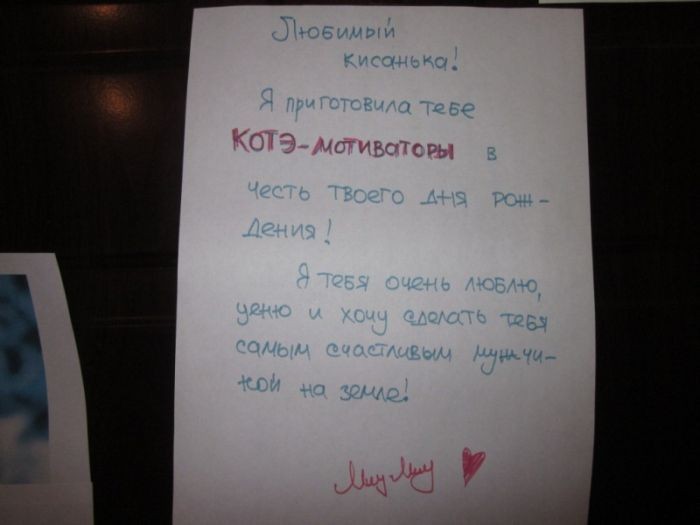 Любимый
кисанька!
Я приготовила тебе
КОТЭ-мотиваторы в
честь твоего дня рож-
дения!
Я тебя очень люблю,
ценю и хочу сделать тебя
самым счастливым мужчи-
ной на земле!
МиуМиу